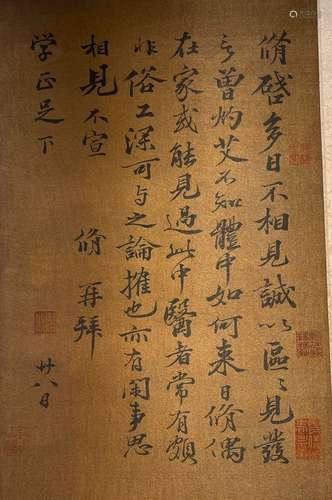 脩啓多日不相見誠以區〻見發
言曾灼艾不知體中如何来日脩偶
在家或能見過此中醫者常有頗
非俗工深可与之論搉也亦有閑事思
相見不宣　脩再拜
学正足下　廿八日